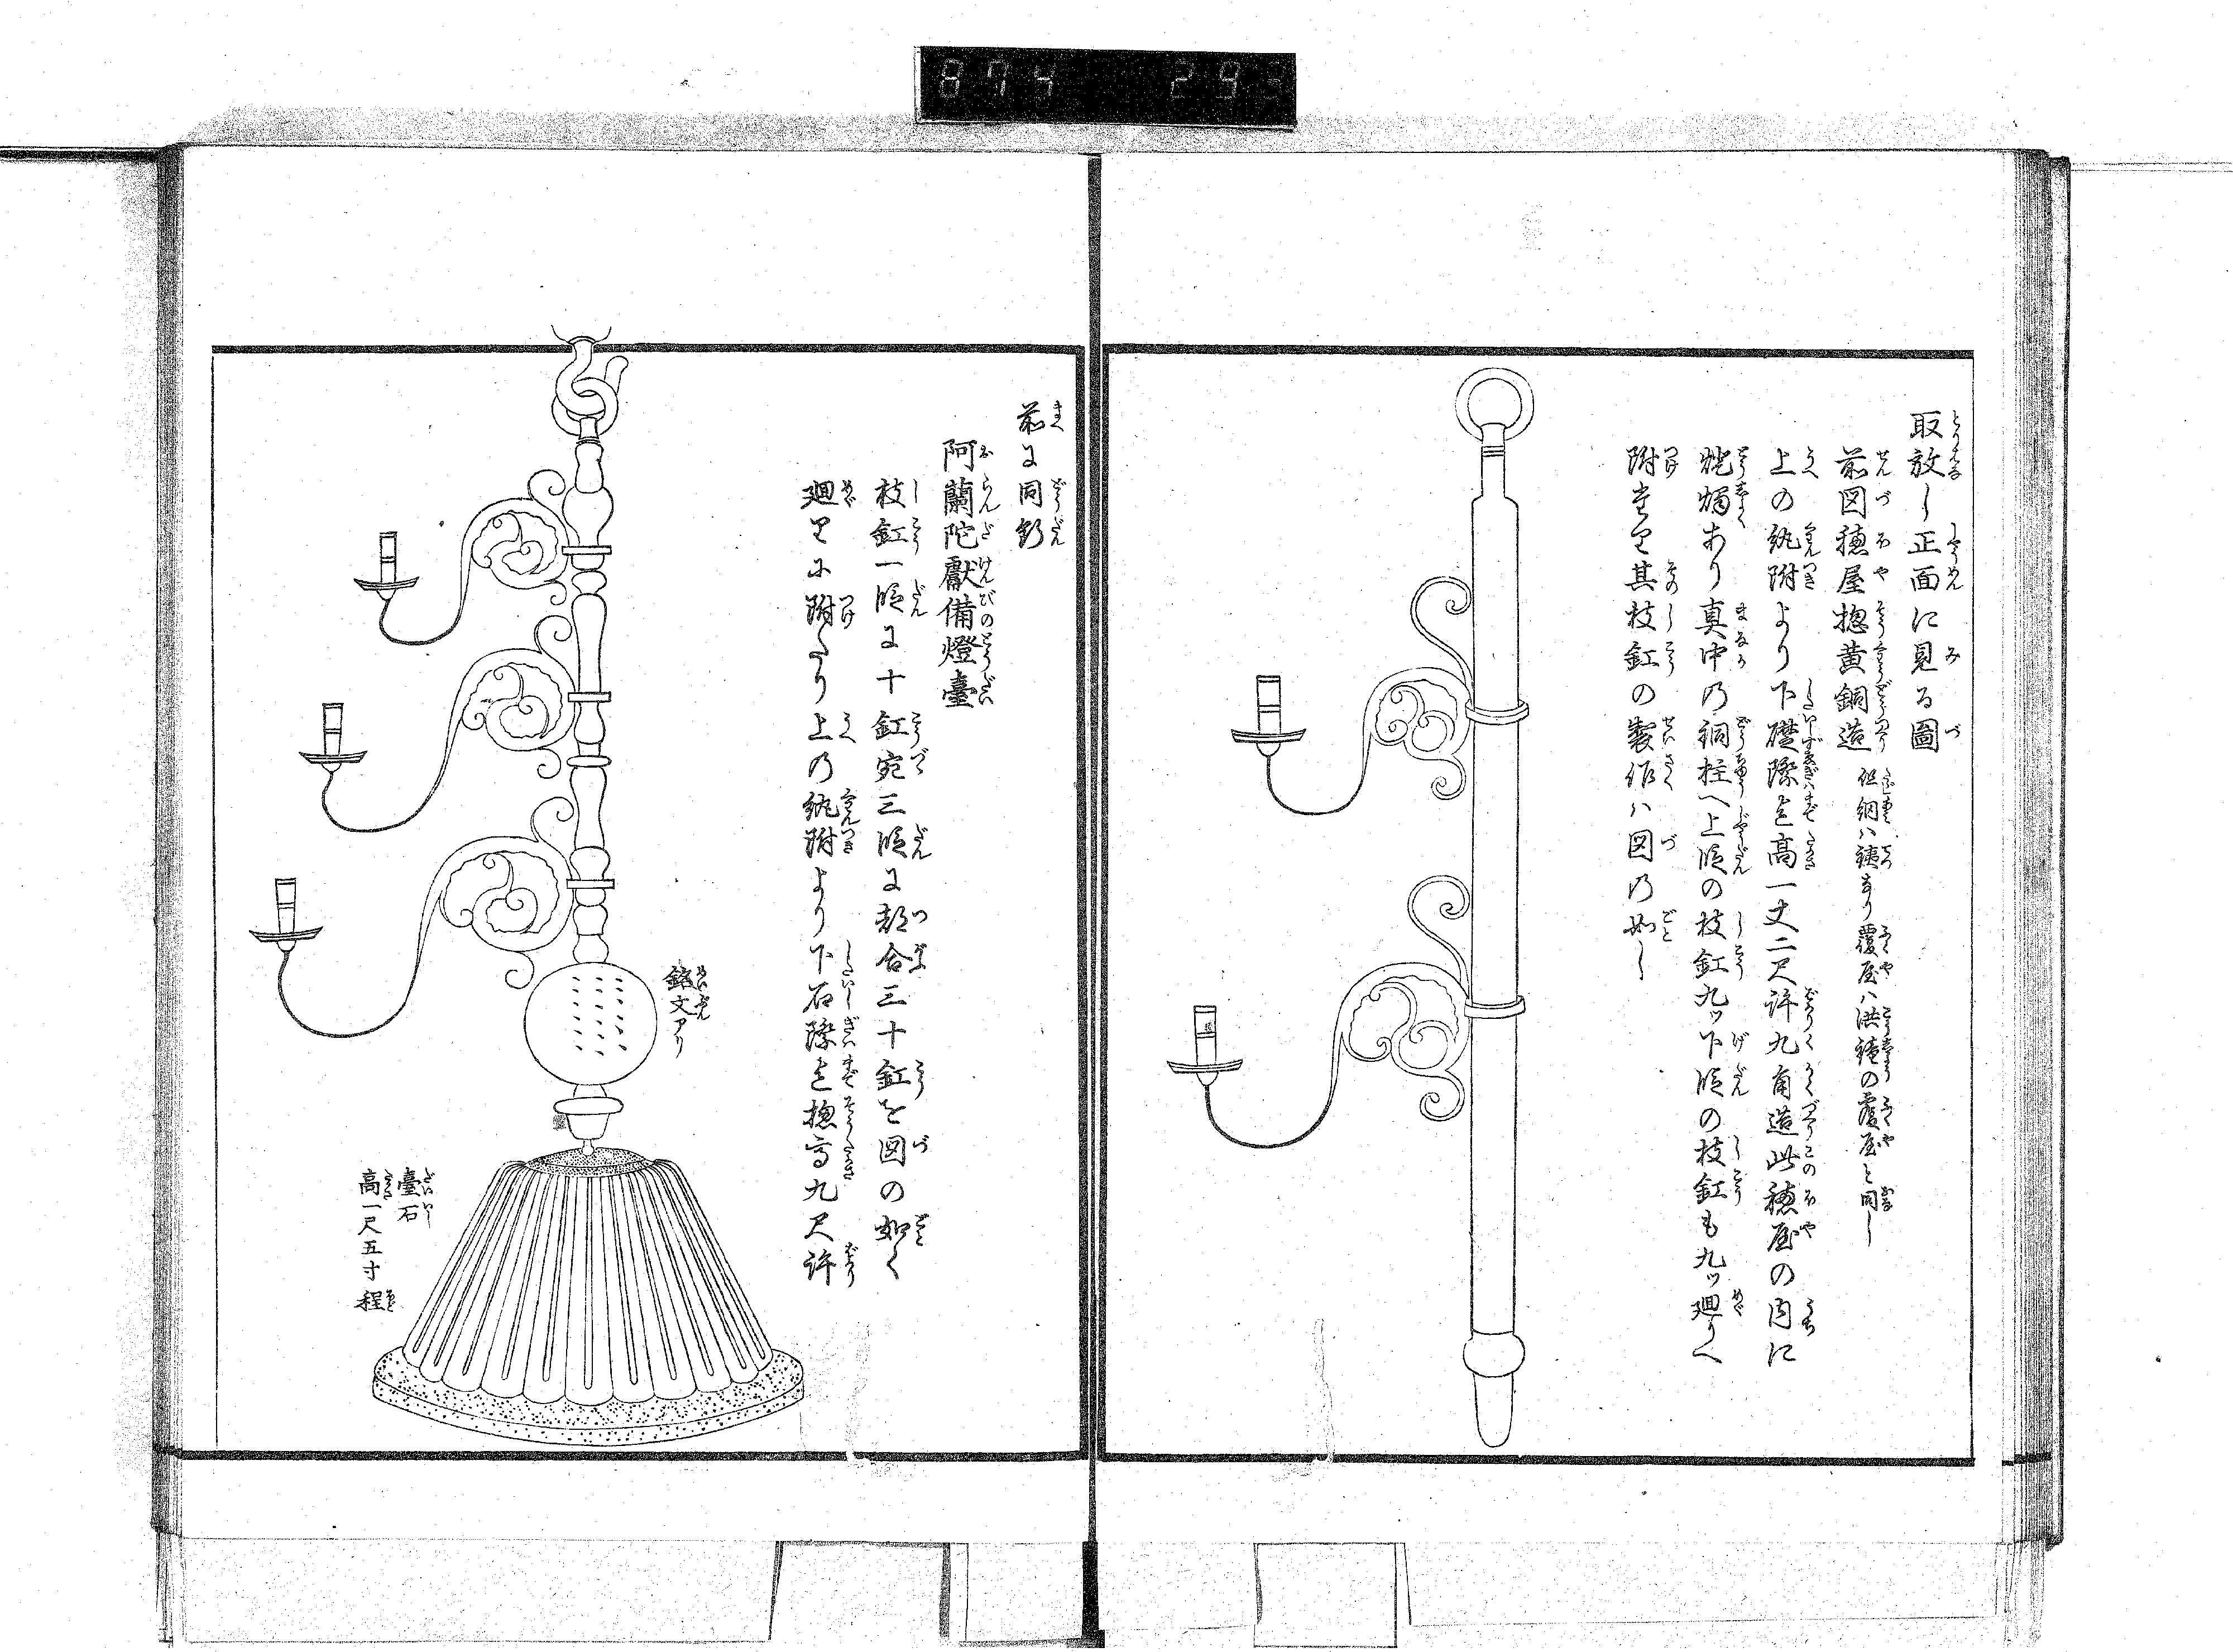 874 29
取放し正面に見る圖
前図穂屋惣黄銅造 但網ハ銕なり覆屋ハ洪鐘の覆屋と同し
上の紈附より下礎際迠高一丈二尺許九角造此穂屋の内に
燭あり真中の銅柱へ上段の枝釭九ッ下段の枝釭も九ッ廻りへ
附たり其枝釭の製作ハ図の如し
前に同断
阿蘭陀獻備燈臺
枝釭一段に十釭宛三段に都合三十釭を図の如く
廻りに附たり上の紈附より下石際迠惣高九尺許
銘文アリ
臺石
高一尺五寸程